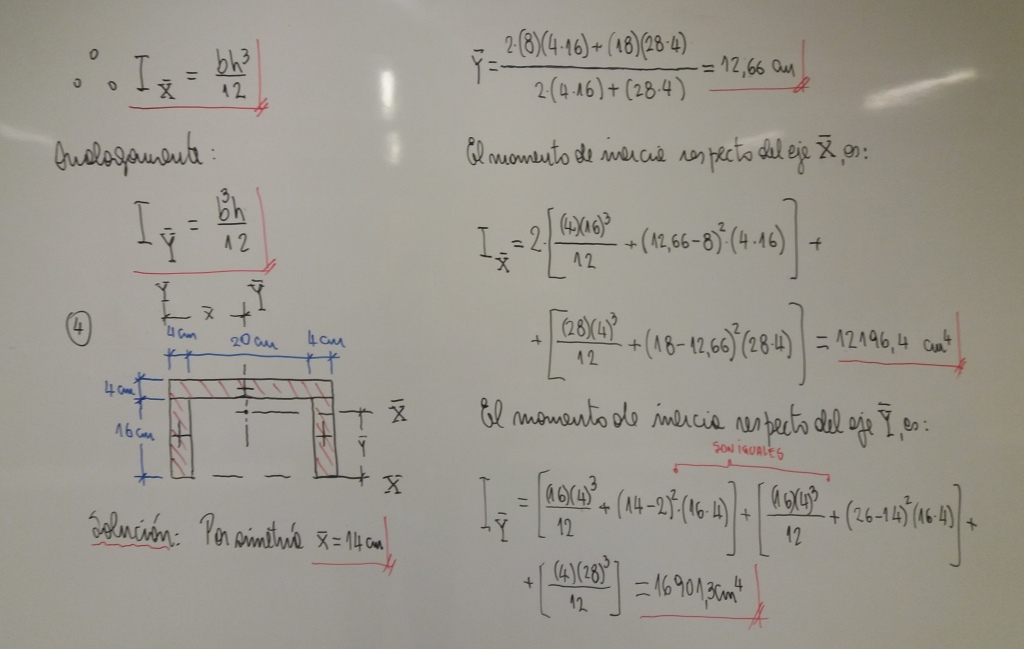 ∴ I_X̄ = bh³/12
Analogamente:
I_Ȳ = b³h/12
Y x̄ Ȳ
④
4cm 20cm 4cm
4cm
16cm
X̄
Ȳ
X
Solución: Por simetría x̄ = 14cm
Ȳ = (2·(8)(4·16)+(18)(28·4))/(2·(4·16)+(28·4)) = 12,66 cm
El momento de inercia respecto del eje X̄, es:
I_X̄ = 2·[(4)(16)³/12 + (12,66-8)²·(4·16)] +
+ [(28)(4)³/12 + (18-12,66)²(28·4)] = 12196,4 cm⁴
El momento de inercia respecto del eje Ȳ, es:
SON IGUALES
I_Ȳ = [(16)(4)³/12 + (14-2)²·(16·4)] + [(16)(4)³/12 + (26-14)²(16·4)] +
+ [(4)(28)³/12] = 16901,3cm⁴